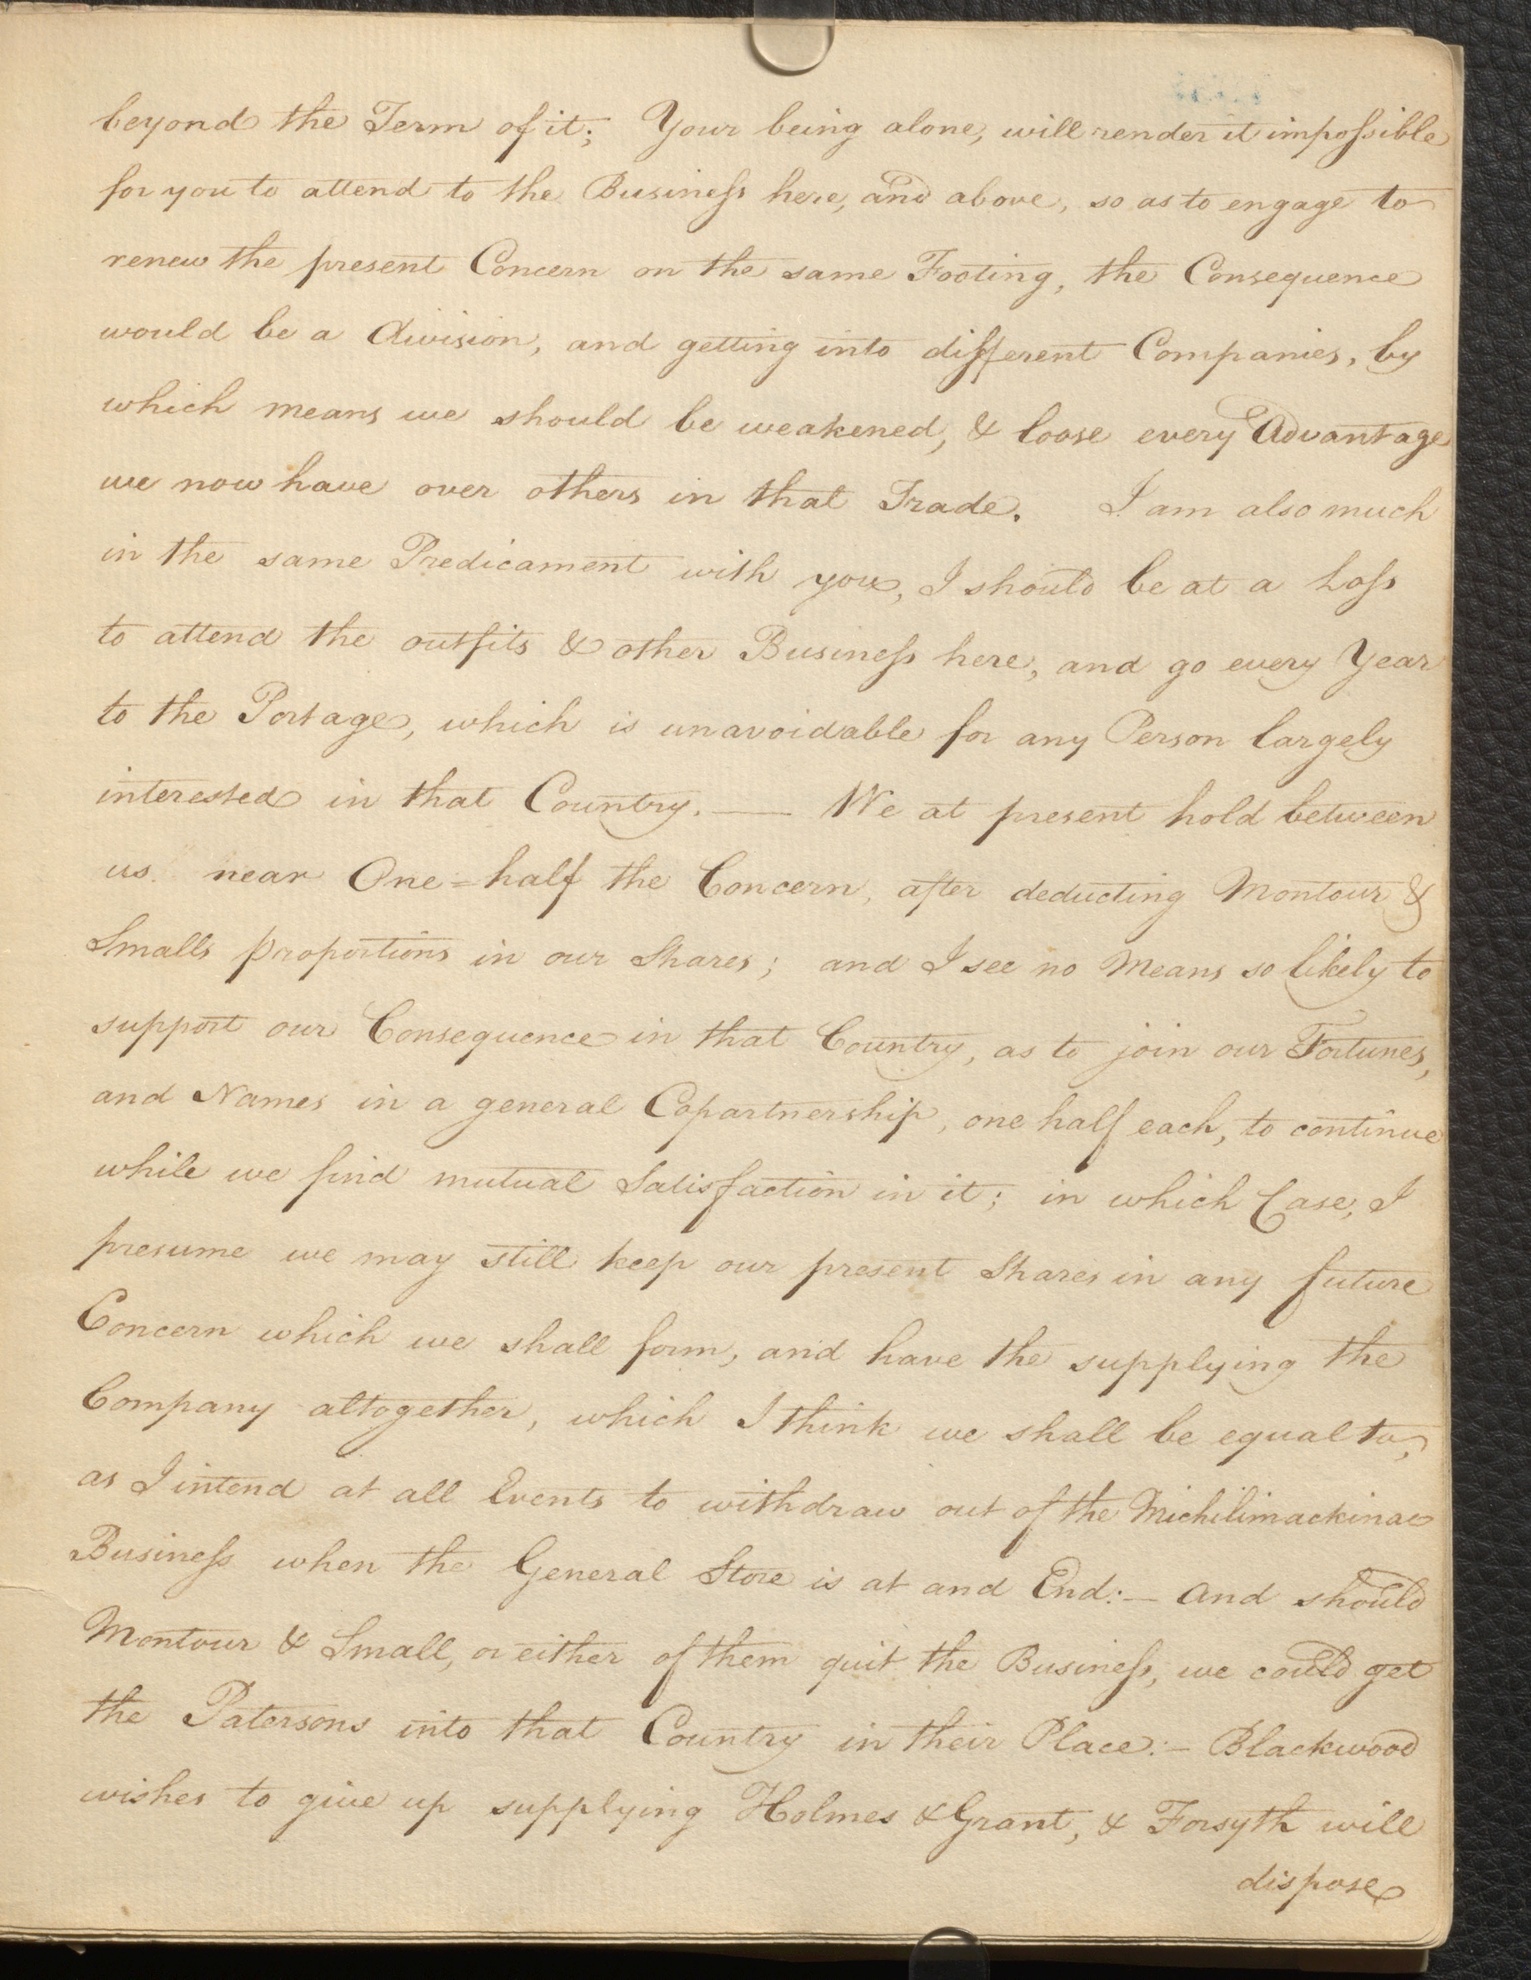 beyond the Term of it; Your being alone, will render it impossible
for you to attend to the Business here, and above, so as to engage to
renew the present Concern on the same Footing, the Consequence
would be a division, and getting into different Companies, by
which means we should be weakened, & loose every Advantage
we now have over others in that Trade. I am also much
in the same Predicament with you, I should be at a Loss
to attend the outfits & other Business here, and go every Year
to the Portage, which is unavoidable for any Person largely
interested in that Country. — We at present hold between
us near One=half the Concern, after deducting Montour &
Smalls proportions in our Shares; and I see no Means so likely to
support our Consequence in that Country, as to join our Fortunes,
and Names in a general Copartnership, one half each, to continue
while we find mutual Satisfaction in it; in which Case, I
presume we may still keep our present Shares in any future
Concern which we shall form, and have the supplying the
Company altogether, which I think we shall be equal to,
as I intend at all Events to withdraw out of the Michilimackinac
Business when the General Store is at and End:— And should
Montour & Small, or either of them quit the Business, we could get
the Patersons into that Country in their Place:— Blackwood
wishes to give up supplying Holmes & Grant, & Forsyth will
dispose